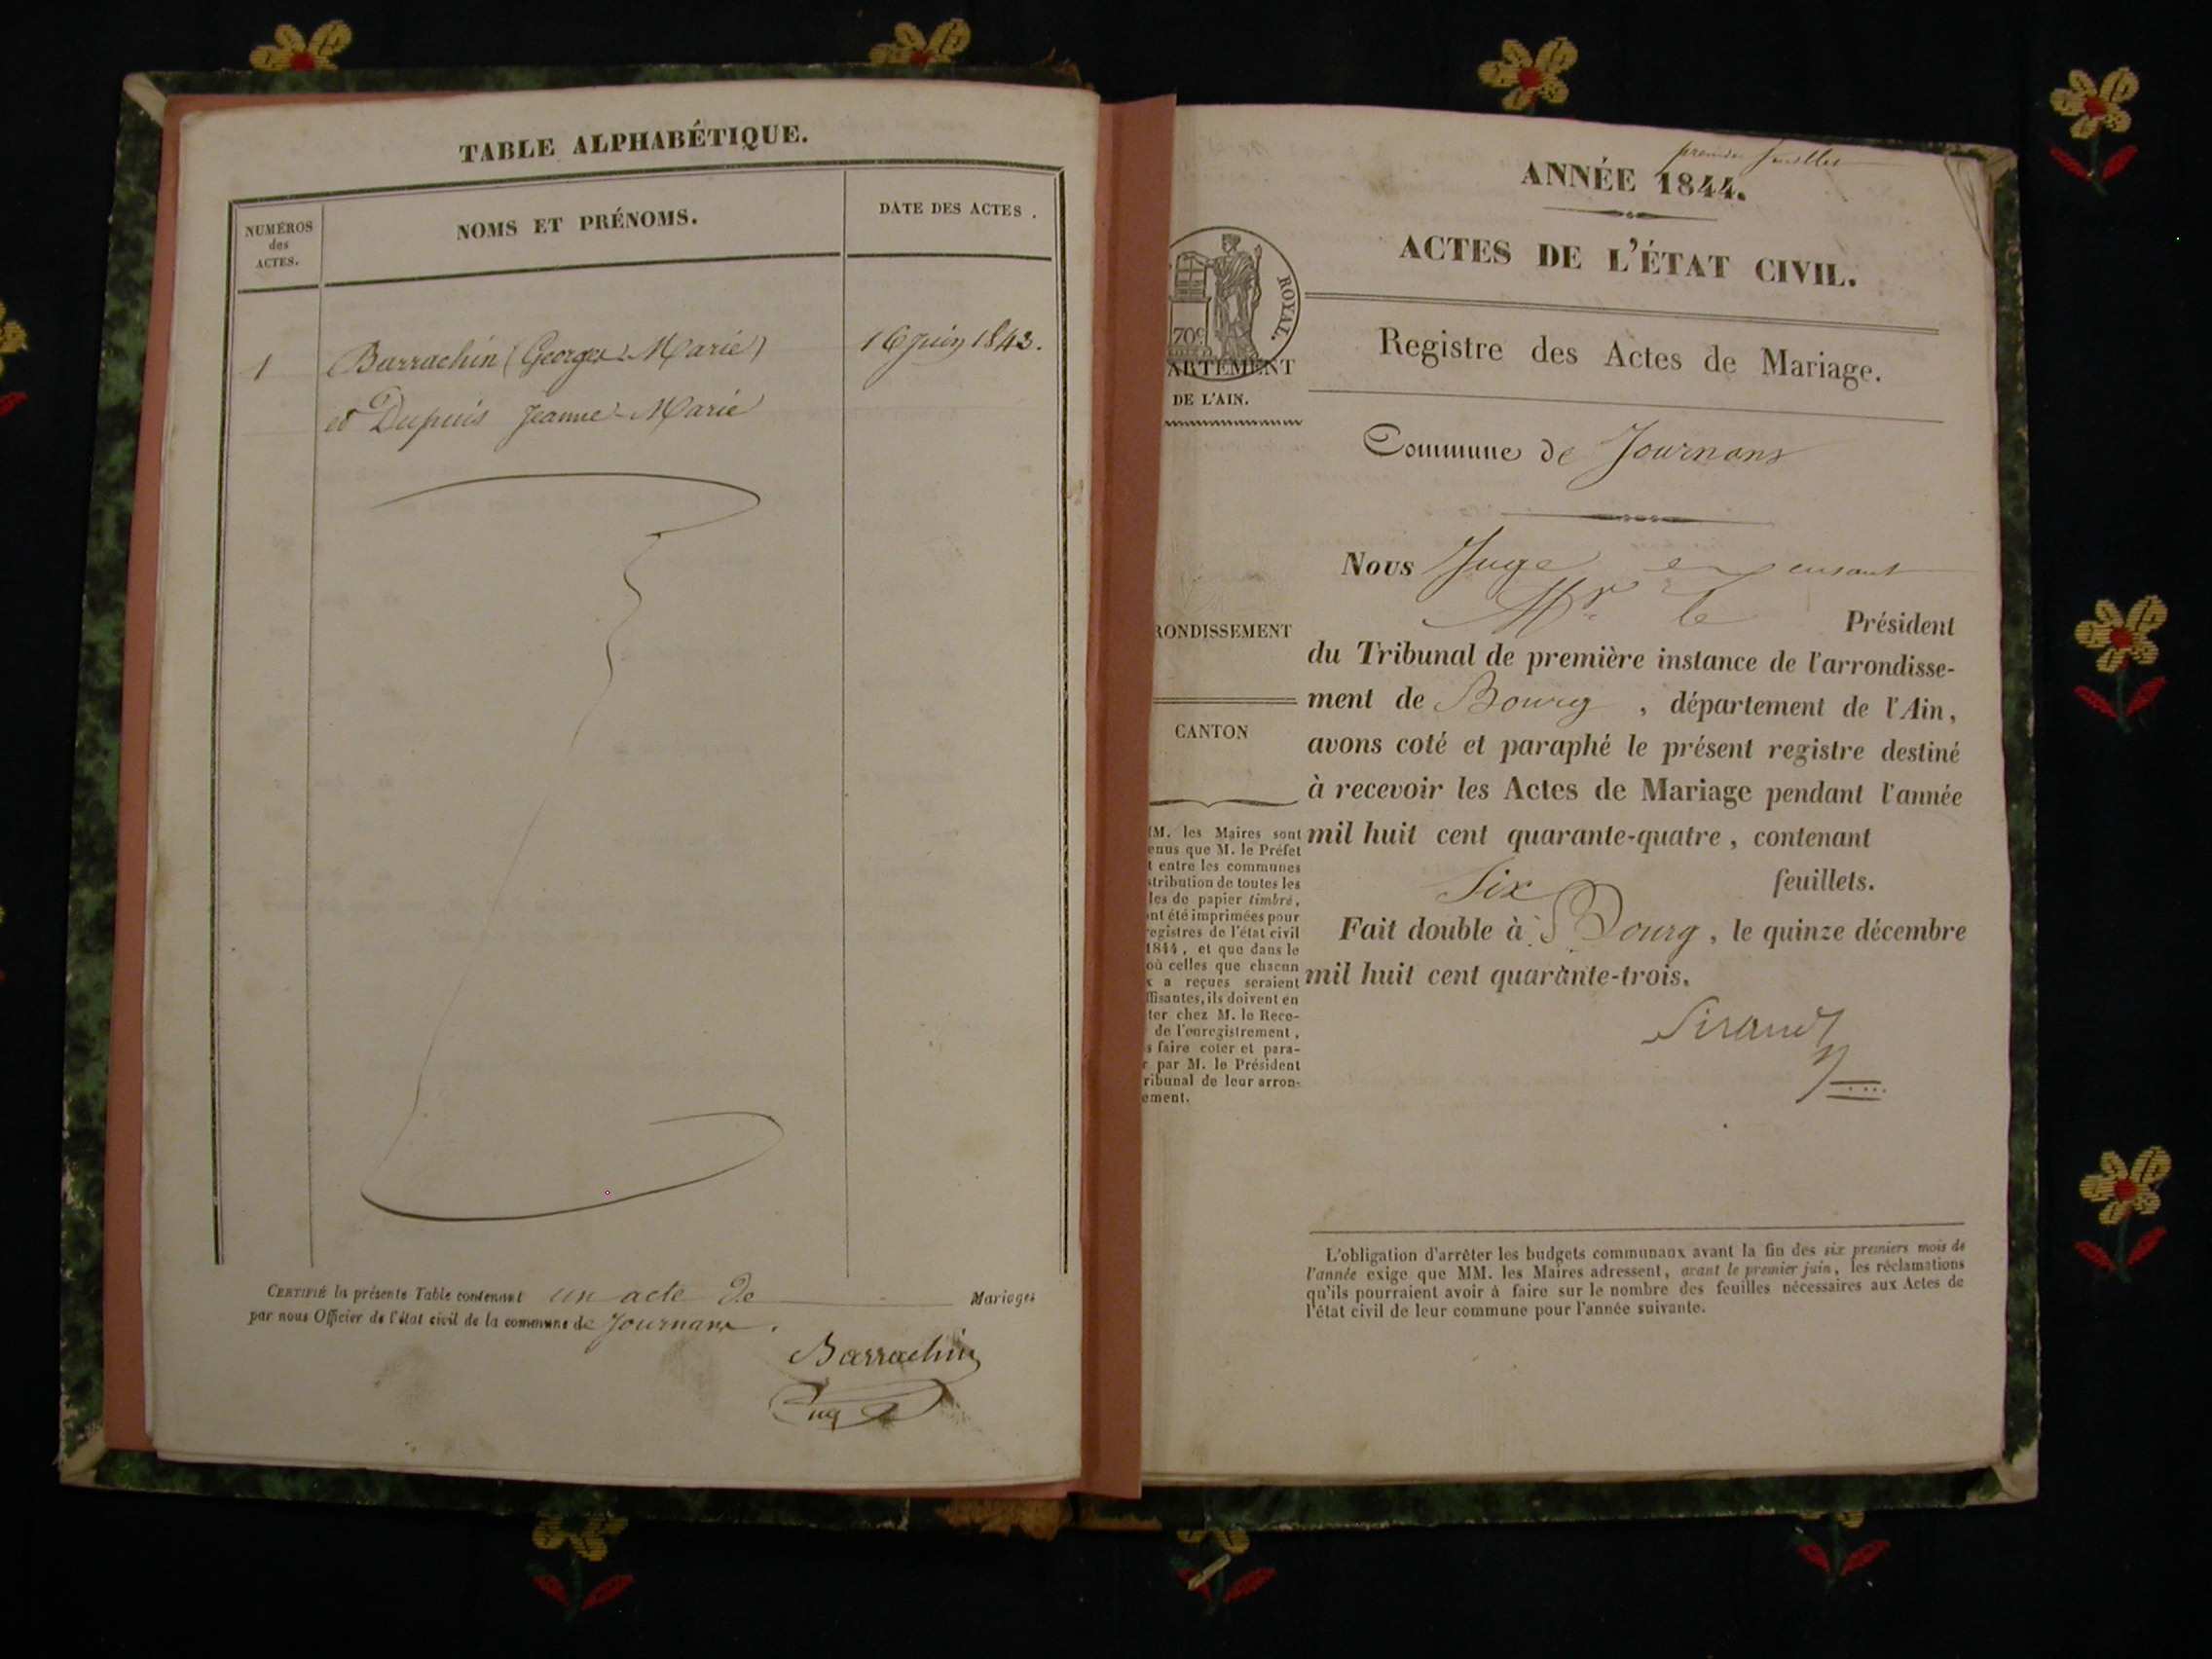 TABLE ALPHABÉTIQUE.
NUMÉROS
des
ACTES.
NOMS ET PRÉNOMS.
DATE DES ACTES.
1 Barrachin (Georges Marie) 16 Juin 1843.
et Dupuis Jeanne-Marie
CERTIFIÉ la présente Table contenant un acte de Mariages
par nous Officier de l'état civil de la commune de Journans.
Barrachin
premier feuillet
ANNÉE 1844.
ACTES DE L'ÉTAT CIVIL.
ROYAL.
70c
Registre des Actes de Mariage.
ARTEMENT
DE L'AIN.
Commune de Journans
Nous Juge en
Mr le Président
RONDISSEMENT
du Tribunal de première instance de l'arrondisse-
ment de Bourg, département de l'Ain,
CANTON
avons coté et paraphé le présent registre destiné
à recevoir les Actes de Mariage pendant l'année
mil huit cent quarante-quatre, contenant
Six feuillets.
Fait double à Bourg, le quinze décembre
mil huit cent quarante-trois.
M. les Maires sont
enus que M. le Préfet
t entre les communes
stribution de toutes les
les de papier timbré,
nt été imprimées pour
egistres de l'état civil
1844, et que dans le
où celles que chacun
x a reçues seraient
ffisantes, ils doivent en
ter chez M. le Rece-
de l'enregistrement,
s faire coter et para-
r par M. le Président
ribunal de leur arron-
ement.
Sirand
L'obligation d'arrêter les budgets communaux avant la fin des six premiers mois de
l'année exige que MM. les Maires adressent, avant le premier juin, les réclamations
qu'ils pourraient avoir à faire sur le nombre des feuilles nécessaires aux Actes de
l'état civil de leur commune pour l'année suivante.